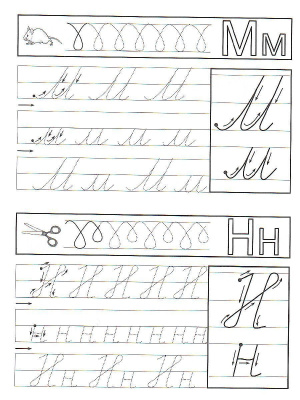 Мм
М М М
м м м м м
М м М м М м
М
м
Нн
Н Н Н Н Н
н н н н н н н н
Нн Нн Нн
Н
н